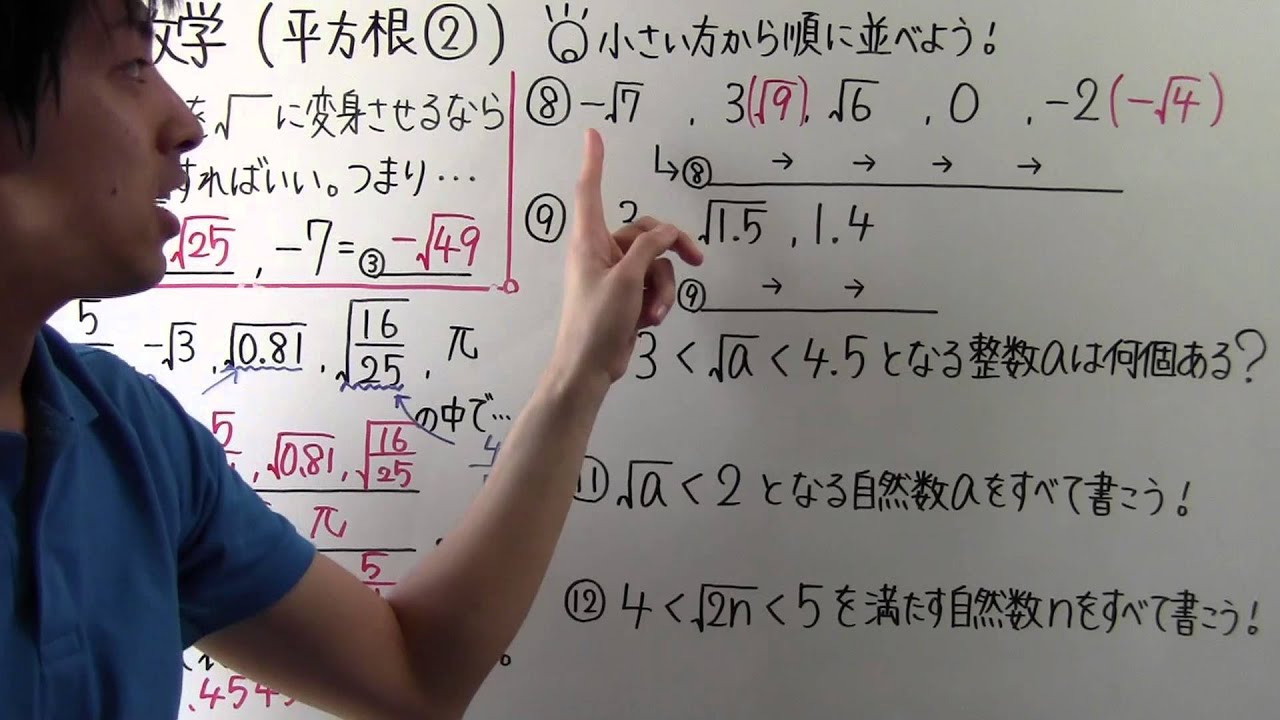 学(平方根②)
を√に変身させるなら
すればいい。つまり…
√25, -7=③-√49
5 -√3, √0.81, √16/25, π
の中で…
5 , √0.81, √16/25
π
5
.454
小さい方から順に並べよう!
⑧-√7 , 3(√9), √6 , 0 , -2(-√4)
↳⑧ → → → →
⑨ √1.5, 1.4
⑨ → →
3<√a<4.5となる整数aは何個ある?
⑪√a<2となる自然数aをすべて書こう!
⑫4<√2n<5を満たす自然数nをすべて書こう!